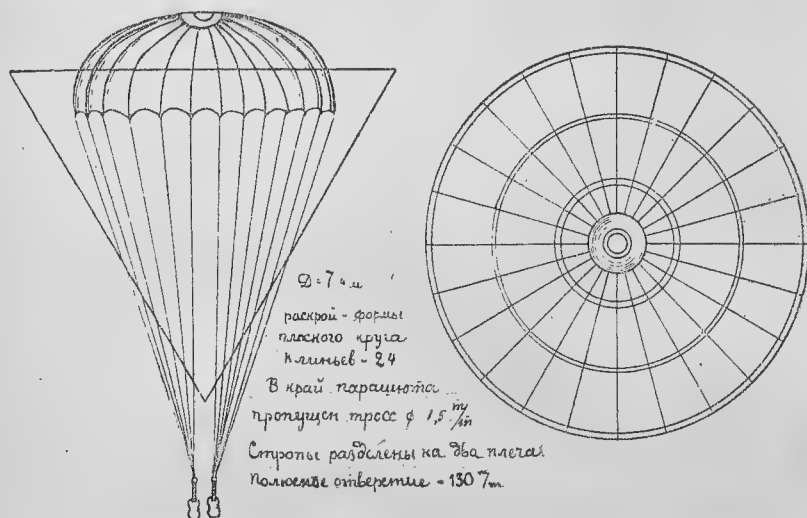 D=7 м
раскрой - формы
плоского круга
Клиньев - 24
В край парашюта
пропущен тросс ф 1,5 m/m
Стропы разделены на два плеча
Полюсное отверстие - 130 m/m